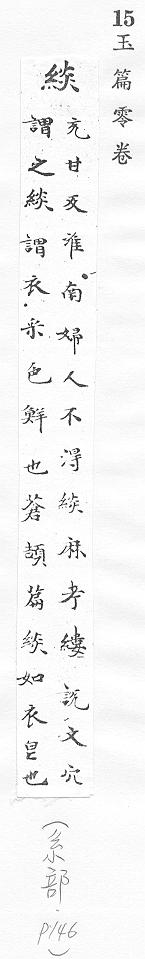 15 玉篇零卷
緂
充甘反淮南婦人不淂緂麻考縷說文穴
謂之緂謂衣采色鮮也蒼頡篇緂如衣皃也
(糸部. P146)